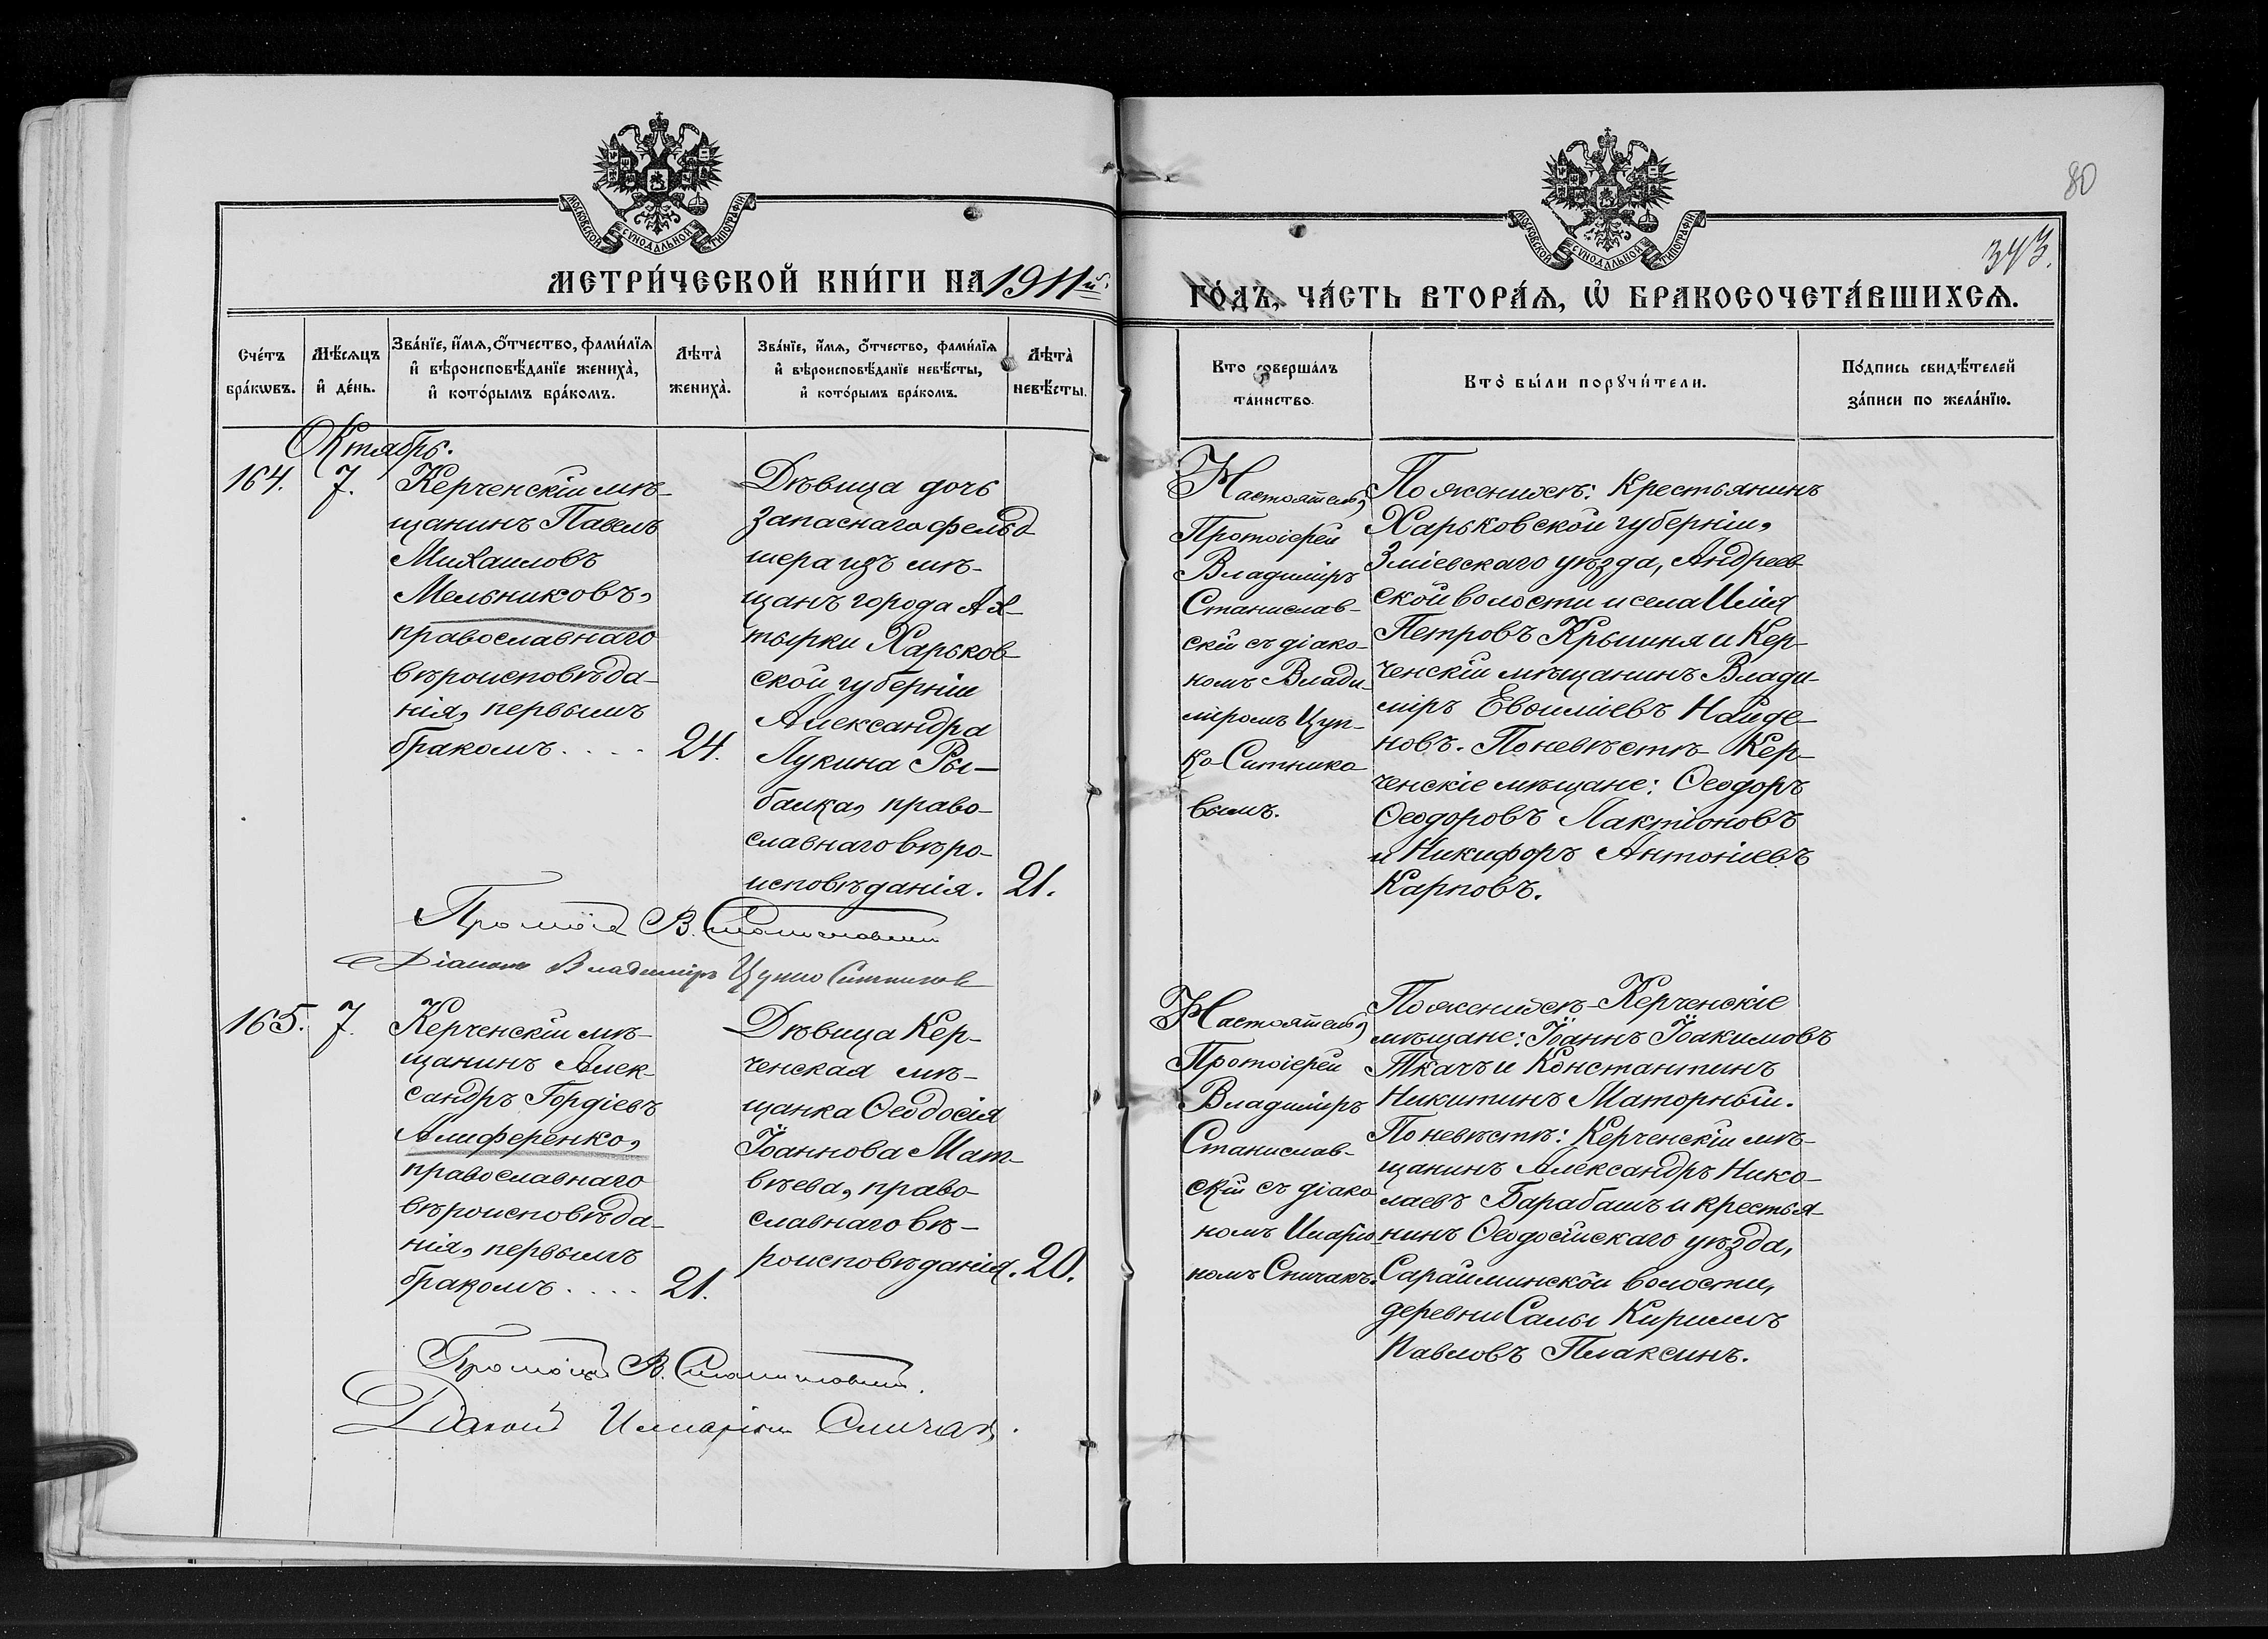 МОСКОВСКОЙ СѴНОДАЛЬНОЙ ТИПОГРАФІИ
МОСКОВСКОЙ СѴНОДАЛЬНОЙ ТИПОГРАФІИ
80
343.
МЕТРИ́ЧЕСКОЙ КНИ́ГИ НА 1911й
ГО́ДЪ, ЧА́СТЬ ВТОРА́Ѧ, Ѡ҆ БРАКОСОЧЕТА́ВШИХСѦ.
Сче́тъ
бра́кѡвъ.
Мѣ́сѧцъ
и҆ де́нь.
Зва́нїе, и҆́мѧ, ѻ҆́тчество, фами́лїѧ
и҆ вѣроисповѣ́данїе жениха̀,
и҆ кото́рымъ бра́комъ.
Лѣта̀
жениха̀.
Зва́нїе, и҆́мѧ, ѻ҆́тчество, фами́лїѧ
и҆ вѣроисповѣ́данїе невѣ́сты,
и҆ кото́рымъ бра́комъ.
Лѣта̀
невѣ́сты.
Кто соверша́лъ
та́инство.
Кто̀ бы́ли порꙋчи́тели.
По́дпись свидѣ́телей
за́писи по жела́нїю.
Октябрь.
164.
7.
Керченскій мѣ-
щанинъ Павелъ
Михаиловъ
Мельниковъ,
православнаго
вѣроисповѣда-
нія, первымъ
бракомъ....
24.
Дѣвица дочь
запаснаго фельд-
шера изъ мѣ-
щанъ города Ах-
тырки Харьков-
ской губерніи
Александра
Лукина Ры-
балка, право-
славнаго вѣро-
исповѣданія.
21.
Настоятель,
Протоіерей
Владиміръ
Станислав-
скій съ діако-
номъ Влади-
міромъ Цуп-
ко-Ситнико-
вымъ.
По женихѣ: Крестьянинъ
Харьковской губерніи,
Зміевскаго уѣзда, Андреев-
ской волости и села Илія
Петровъ Крышня и Кер-
ченскій мѣщанинъ Влади-
міръ Евѳиміевъ Найде-
новъ. По невѣстѣ Кер-
ченскіе мѣщане: Ѳеодоръ
Ѳеодоровъ Лактіоновъ
и Никифоръ Антоніевъ
Карповъ.
В. Станиславскій
Діаконъ Владиміръ Цупко Ситниковъ
165.
7.
Керченскій мѣ-
щанинъ Алек-
сандръ Гордіевъ
Алиференко,
православнаго
вѣроисповѣда-
нія, первымъ
бракомъ....
21.
Дѣвица Кер-
ченская мѣ-
щанка Ѳеодосія
Іоаннова Мат-
вѣева, право-
славнаго вѣ-
роисповѣданія.
20.
Настоятель,
Протоіерей
Владиміръ
Станислав-
скій съ діако-
номъ Иларіо-
номъ Спичакъ.
По женихѣ-Керченскіе
мѣщане: Іоаннъ Іоакимовъ
Ткачъ и Константинъ
Никитинъ Маторный.
По невѣстѣ: Керченскій мѣ-
щанинъ Александръ Нико-
лаевъ Барабашъ и крестья-
нинъ Ѳеодосійскаго уѣзда,
Сарайминской волости,
деревни Салы Кириллъ
Павловъ Плаксинъ.
В. Станиславскій.
Діаконъ Спичакъ.